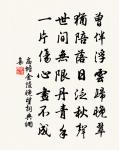 曾伴浮雲歸晚翠
猶陪落日泛秋聲
世間無限丹青手
一片傷心畫不成
高蟾金陵晚望詞典網
集